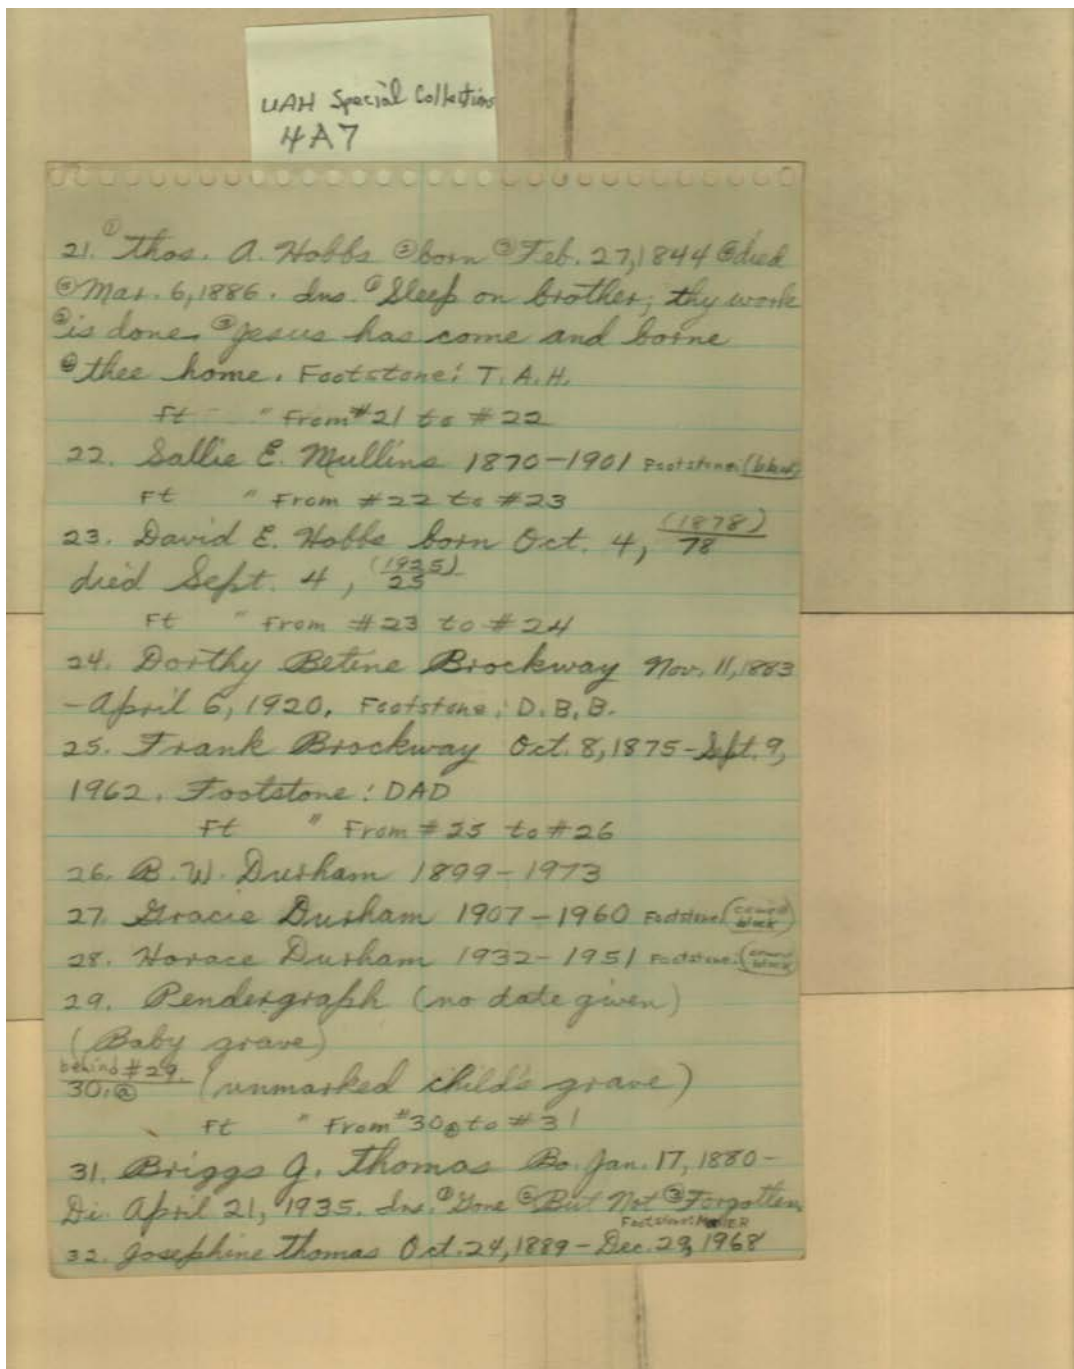 UAH Special Collections
4A7
①
21. Thos. A. Hobbs ②born ③Feb. 27, 1844 ④died
⑤Mar. 6, 1886. Ins. ①Sleep on brother; thy work
②is done ③Jesus has come and borne
④thee home. Footstone: T. A. H.
Ft " From #21 to #22
22. Sallie E. Mullins 1870-1901 Footstone: (blank)
Ft " From #22 to #23
23. David E. Hobbs born Oct. 4, (1878)
78
died Sept. 4, (1925)
25
Ft " From #23 to #24
24. Dorthy Betine Brockway Nov. 11, 1883
- April 6, 1920. Footstone: D. B. B.
25. Frank Brockway Oct. 8, 1875 - Sept. 9,
1962. Footstone: DAD
Ft " From #25 to #26
26. B. W. Durham 1899-1973
27. Gracie Durham 1907-1960 Footstone: block)
28. Horace Durham 1932-1951 Footstone: block)
29. Pendergraph (no date given)
(Baby grave)
behind #29.
30.@ (unmarked child's grave)
Ft " From #30@ to #31
31. Briggs J. Thomas Bo. Jan. 17, 1880 -
Di. April 21, 1935. Ins. ①Gone ②But Not ③Forgotten
Footstone: MOTHER
32. Josephine Thomas Oct. 24, 1889 - Dec. 29, 1968